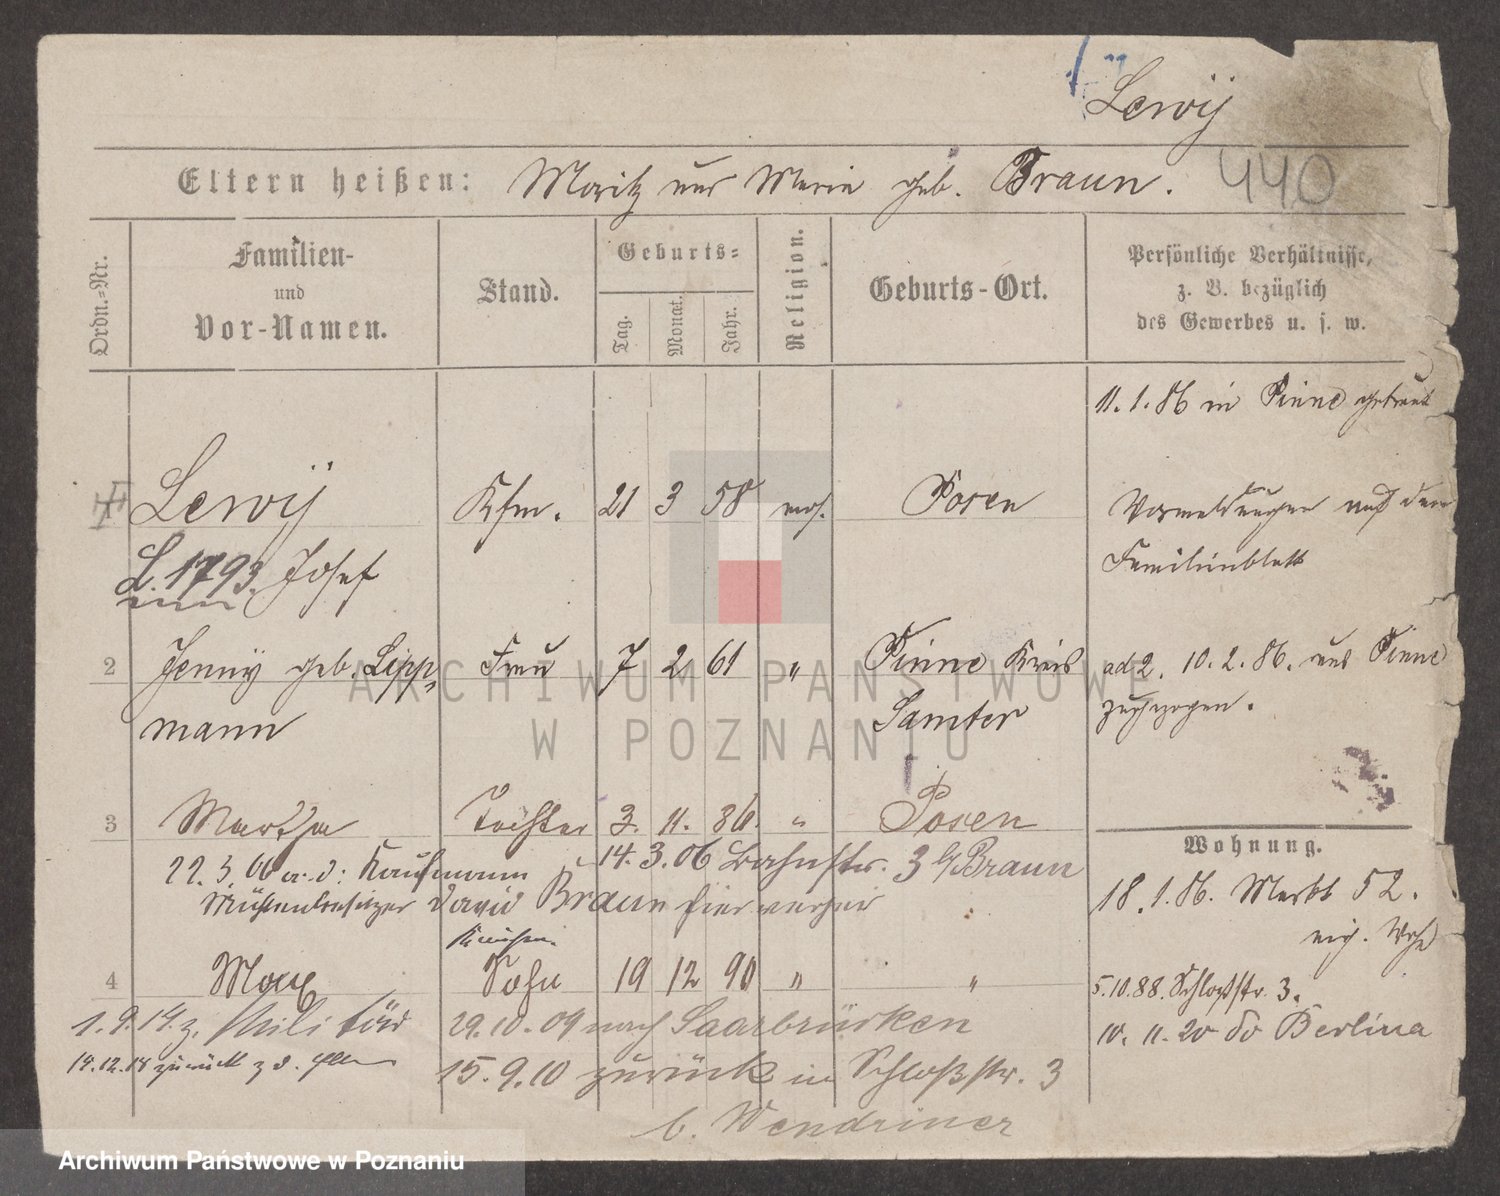 Lewÿ
Eltern heißen: Moritz und Marie geb. Braun.
440
Ordn.-Nr.
Familien-
und
Vor-Namen.
Stand.
Geburts-
Tag.
Monat.
Jahr.
Religion.
Geburts-Ort.
Persönliche Verhältnisse,
z. B. bezüglich
des Gewerbes u. s. w.
11.1.86 in Pinne getraut
Lewÿ Kfm. 21 3 58 mos. Posen
Vormeldungen auf dem
Familienblatt
L. 1793. Josef
2 Jenny geb. Lipp- Frau 7 2 61 " Pinne Kreis
mann Samter
ad 2. 10.2.86. aus Pinne
zugezogen.
3 Martha Tochter 3. 11. 86. " Posen
22.3.06 a. d: Kaufmann 14.3.06 Bahnstr. 3 b/ Braun
Mühlenbesitzer David Braun hier verheir
Wohnung.
18.1.86. Markt 52.
eig. Whg
4 Max Sohn 19 12 90 " "
5.10.88. Schloßstr. 3.
1.9.14 z. Militär 29.10.09 nach Saarbrücken
10.11.20 do Berlin
14.12.18 zurück z. d. Eltern 15.9.10 zurück in Schloßstr. 3
b. Wendriner
ARCHIWUM PAŃSTWOWE
W POZNANIU
Archiwum Państwowe w Poznaniu